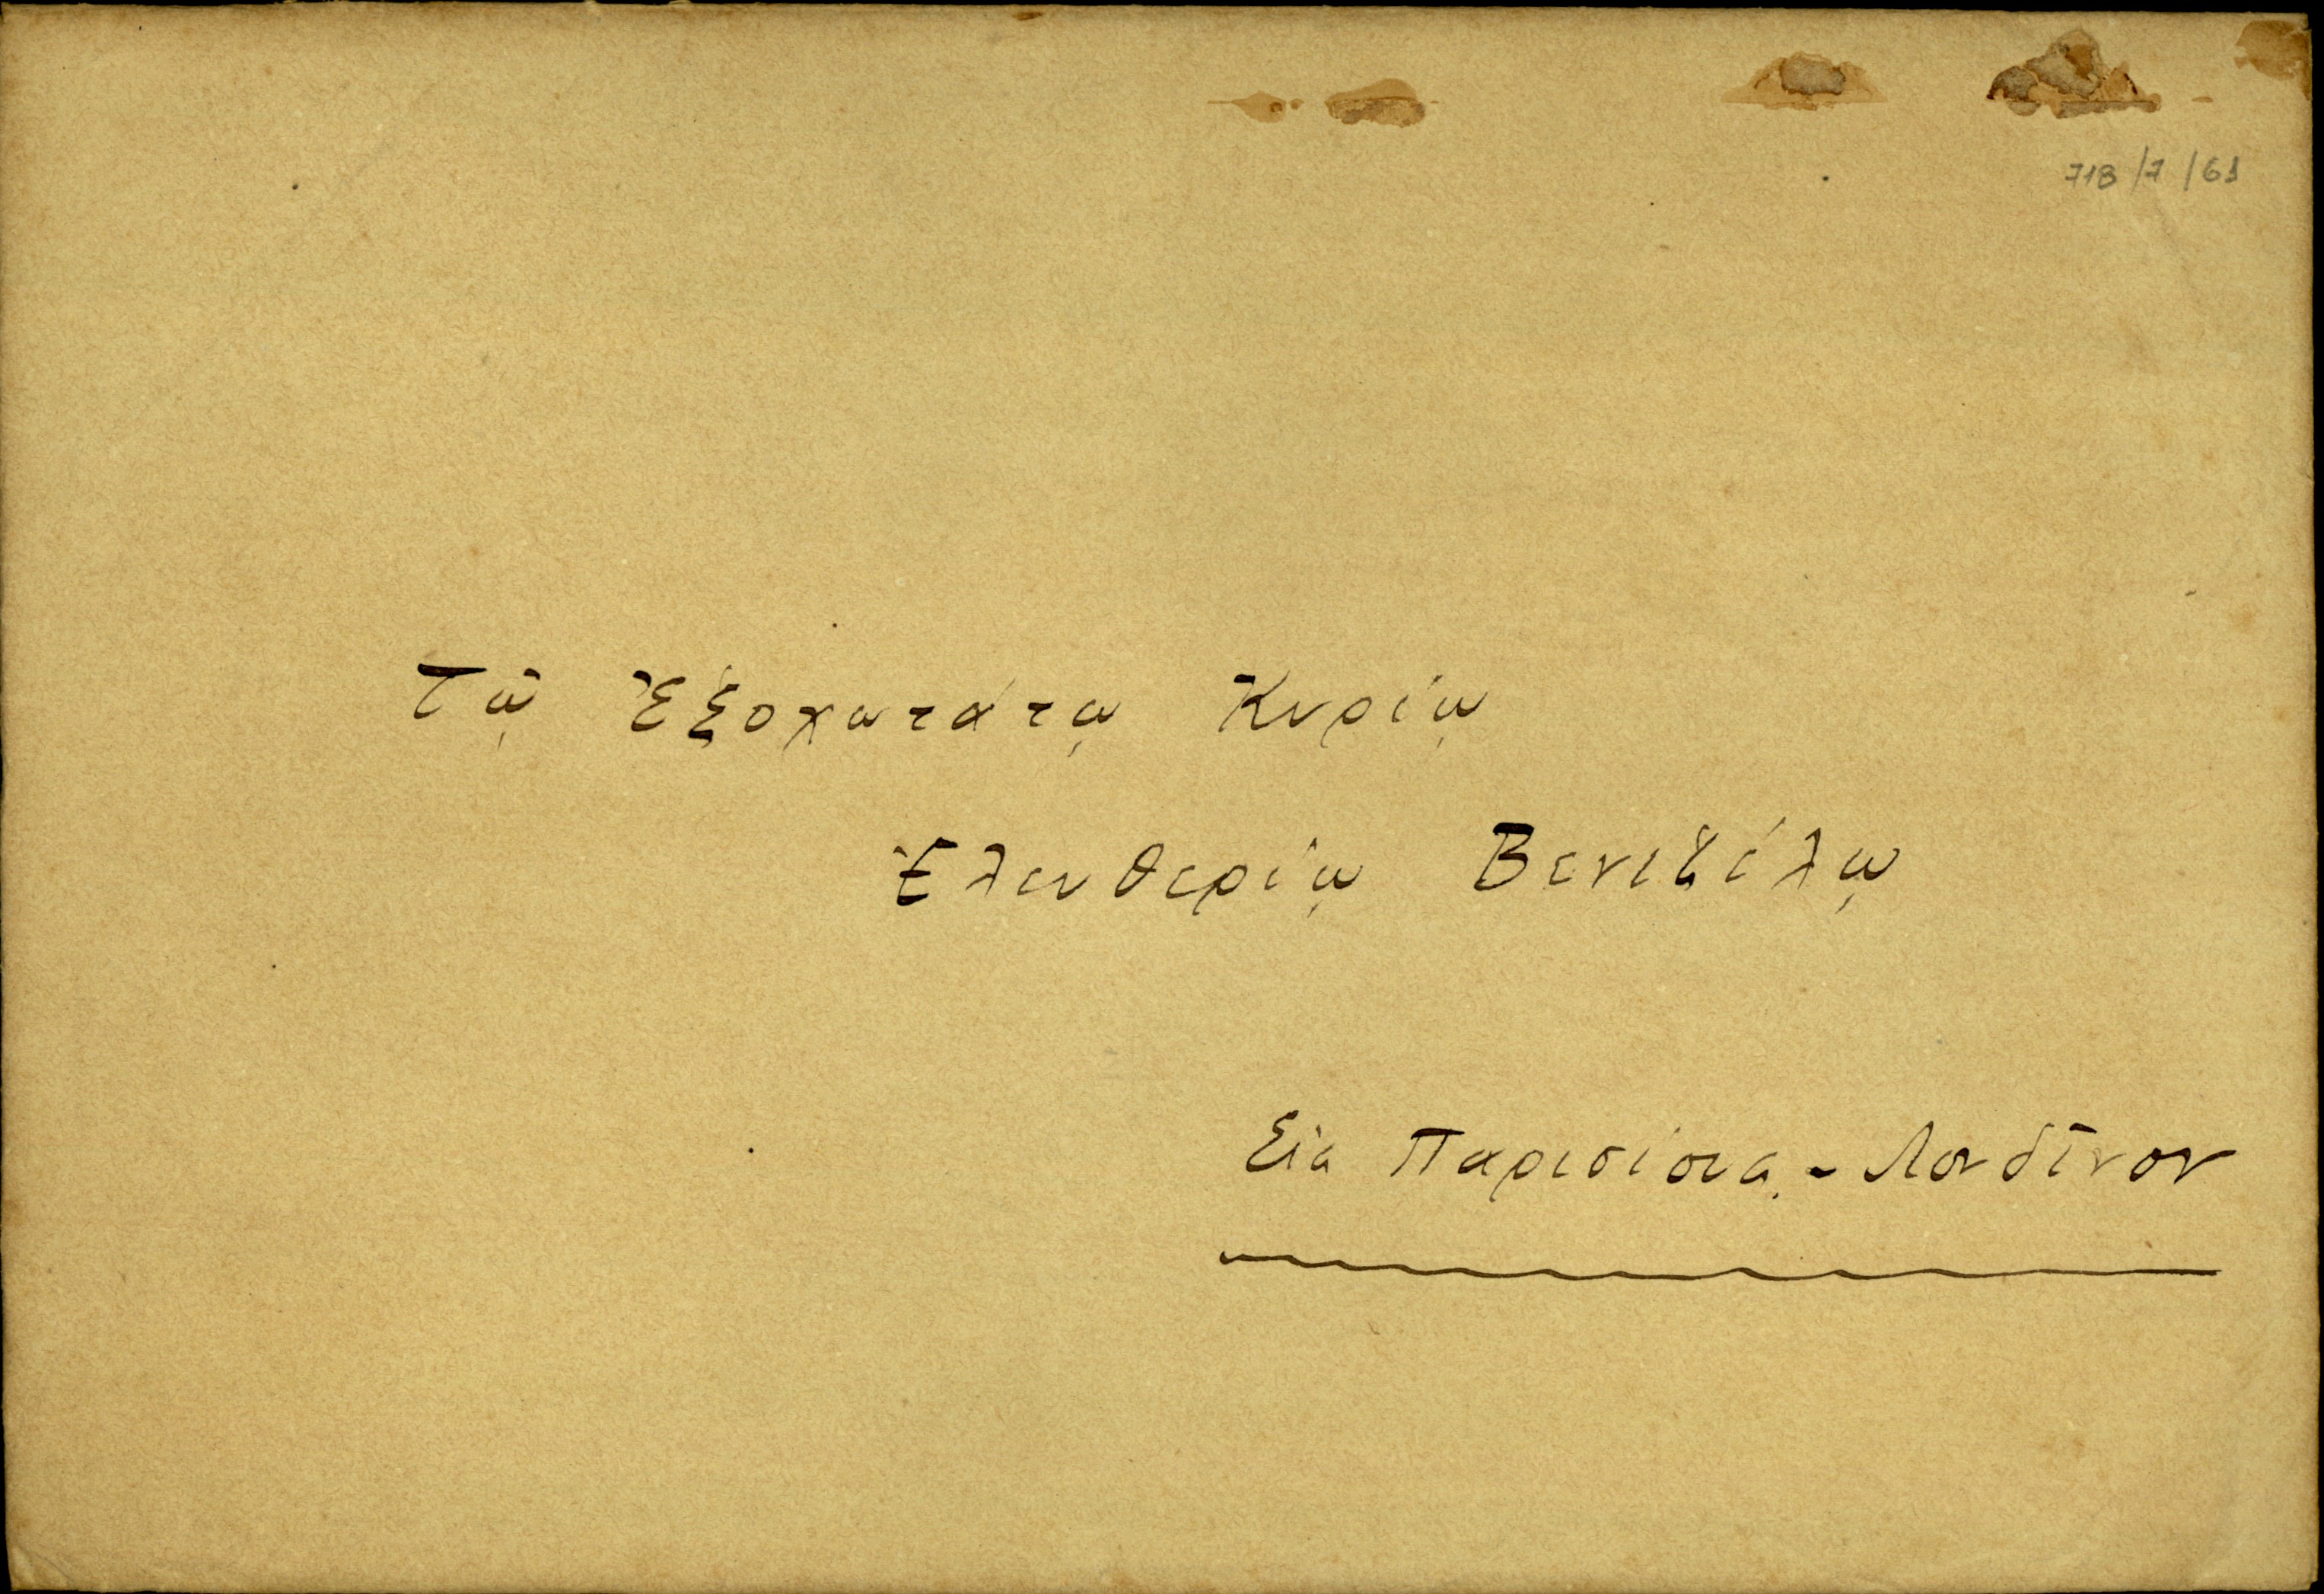 718/7/61
Τῷ Ἐξοχωτάτῳ Κυρίῳ
Ἐλευθερίῳ Βενιζέλῳ
Εἰς Παρισίους - Λονδῖνον